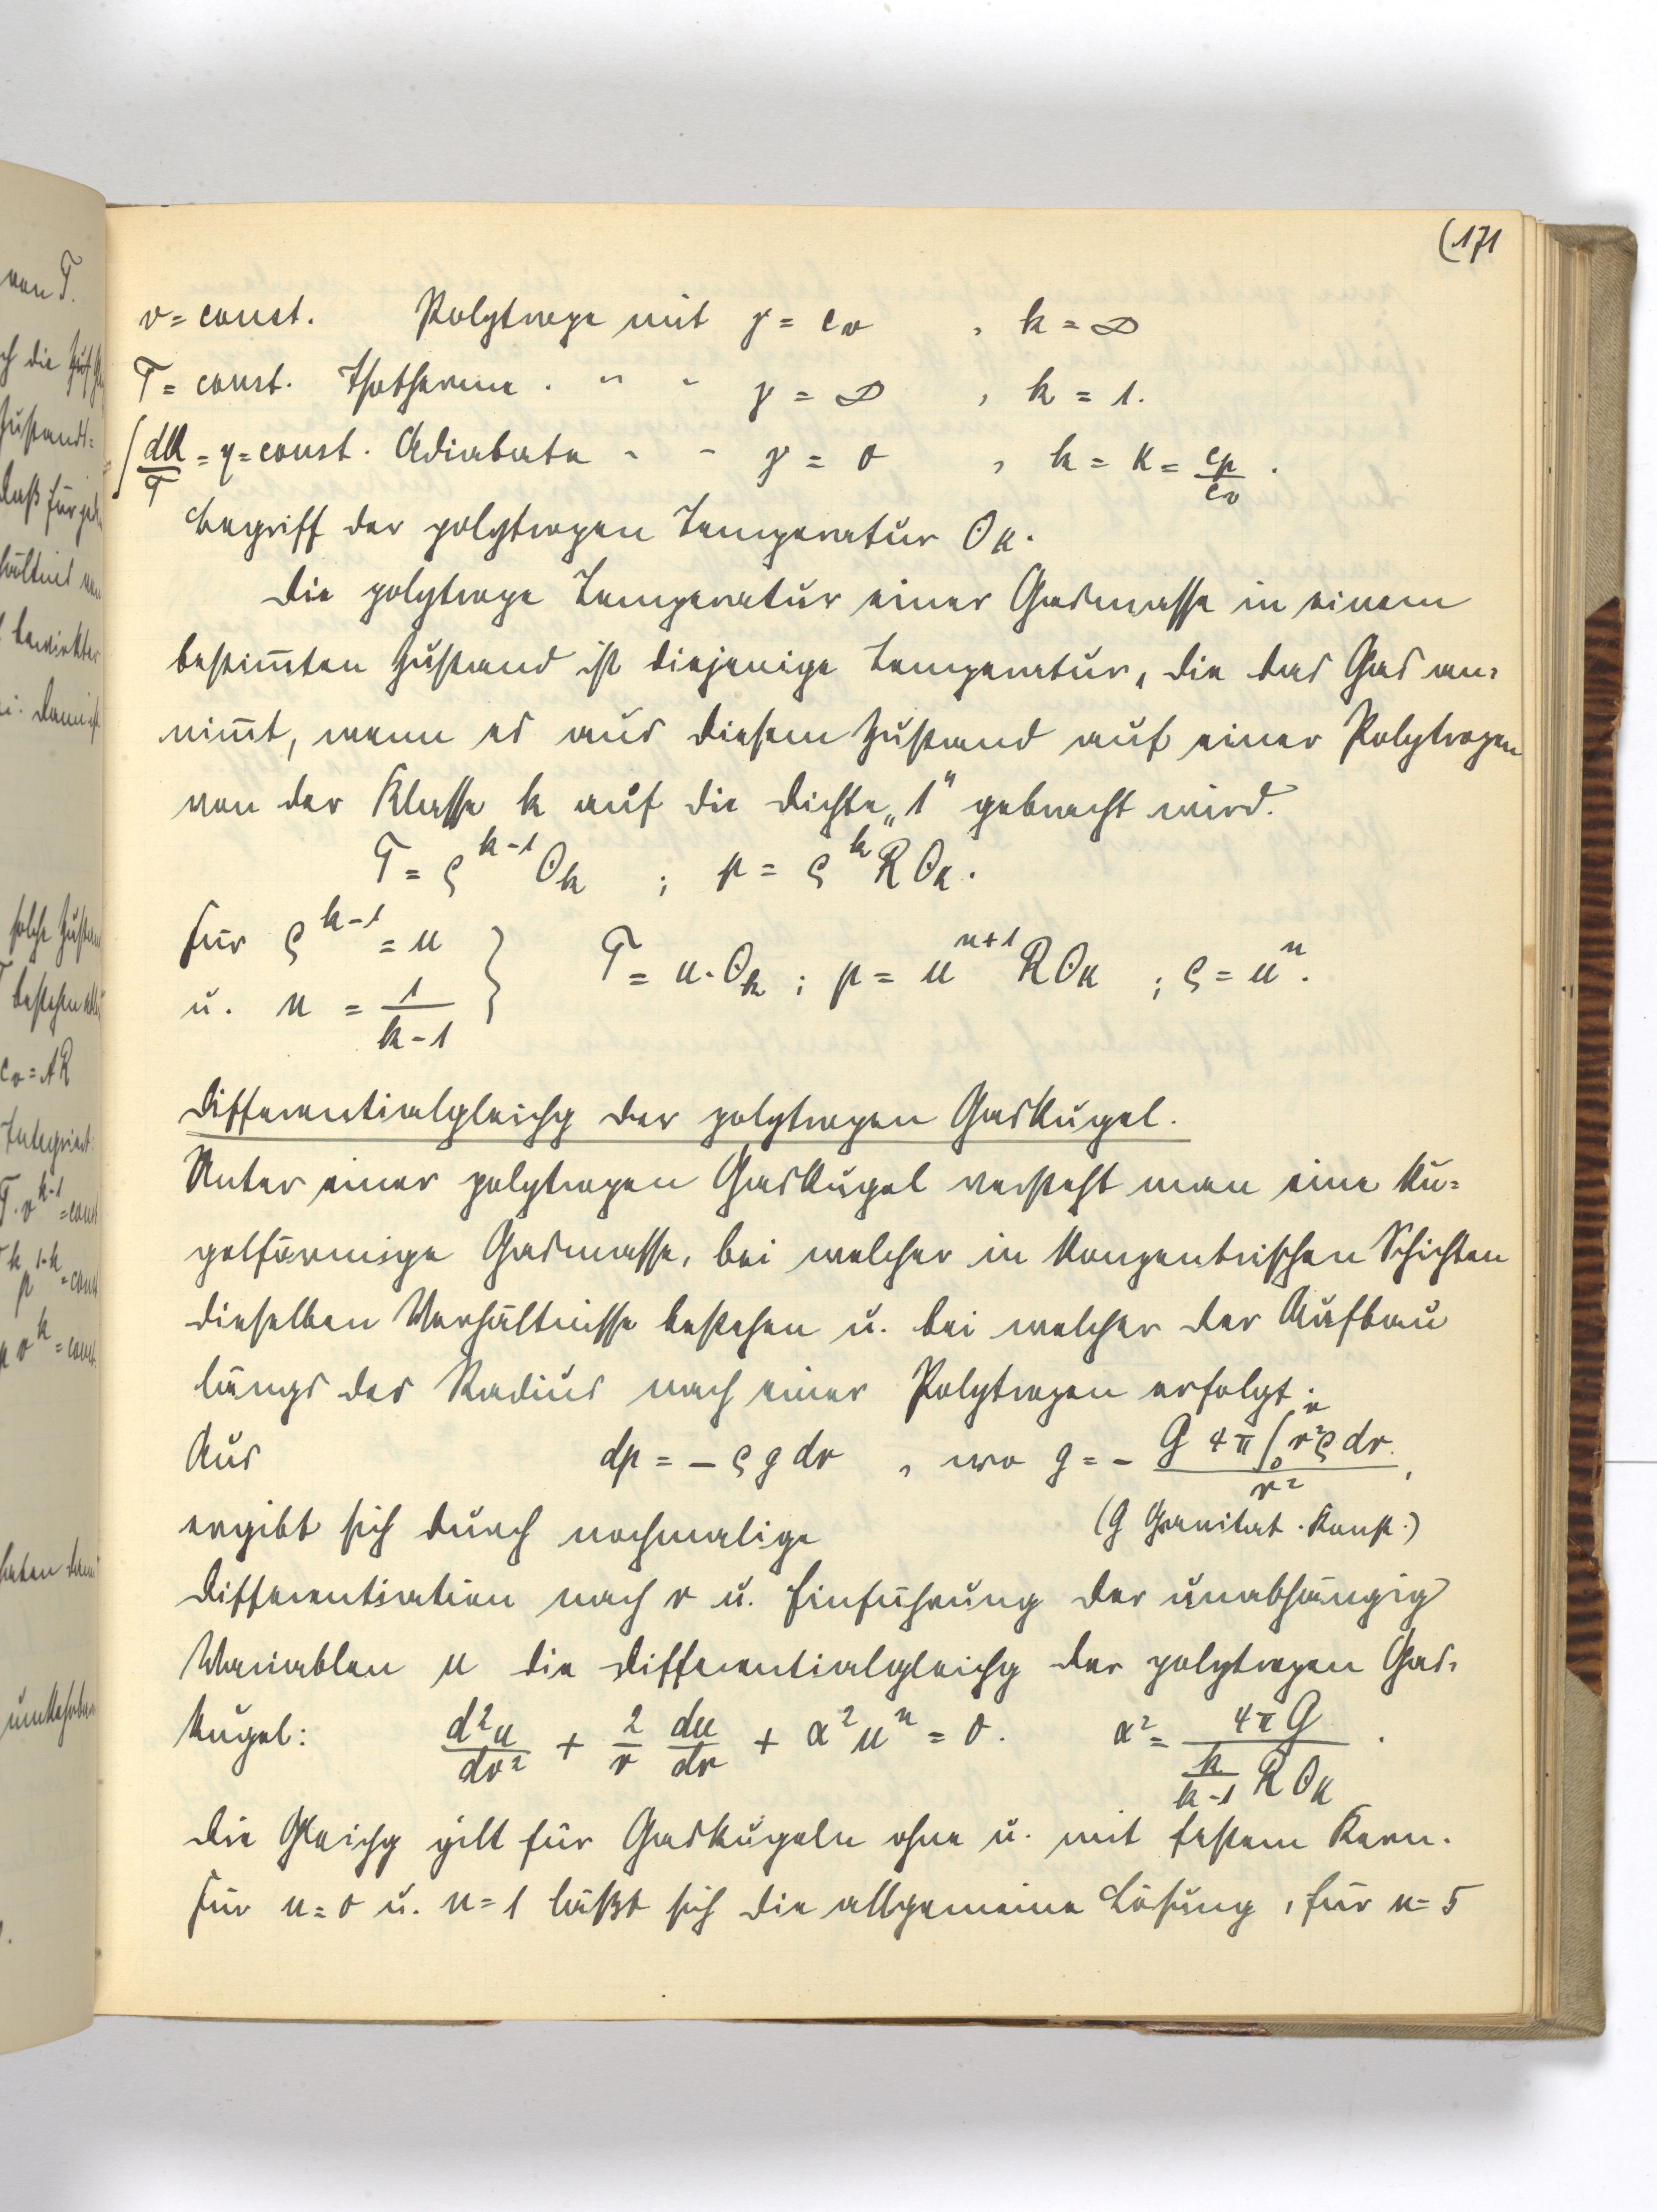 (171
v = const. Polytrope mit γ = cv , k = ∞
T = const. Isotherme . " " γ = ∞ , k = 1.
∫ dQ/T = η = const. Adiabate " " γ = 0 , k = κ = cp/cv .
Begriff der polytropen Temperatur Θk.
Die polytrope Temperatur einer Gasmasse in einem
bestim̄ten Zustand ist diejenige Temperatur, die das Gas an-
nim̄t, wenn es aus diesem Zustand auf einer Polytropen
von der Klasse k auf die Dichte „1" gebracht wird.
T = ρ^(k-1) Θk ; p = ρ^k R Θk.
Für ρ^(k-1) = u } T = u · Θk ; p = u^(n+1) R Θk ; ρ = u^n.
u. n = 1/(k-1)
Differentialgleichg der polytropen Gaskugel.
Unter einer polytropen Gaskugel versteht man eine Ku-
gelförmige Gasmasse, bei welcher in konzentrischen Schichten
dieselben Verhältnisse bestehen u. bei welcher der Aufbau
längs des Radius nach einer Polytropen erfolgt.
Aus dp = – ρ g dr , wo g = – G 4π ∫₀^r r²ρ dr / r² ,
ergibt sich durch nochmalige (G Gravitat. Konst.)
Differentiation nach r u. Einführung der unabhängig
Variablen u die Differentialgleichg der polytropen Gas-
kugel: d²u/dr² + 2/r du/dr + α² u^n = 0. α² = 4πG / (k/(k-1) R Θk) .
Die Gleichg gilt für Gaskugeln ohne u. mit festem Kern.
Für n = 0 u. n = 1 läßt sich die allgemeine Lösung, für n = 5
von T.
Zustands-
daß für
bewirkter
solche
bestehen
cv = AR
Integriert
T · v^(k-1) = const
p v^k = const.